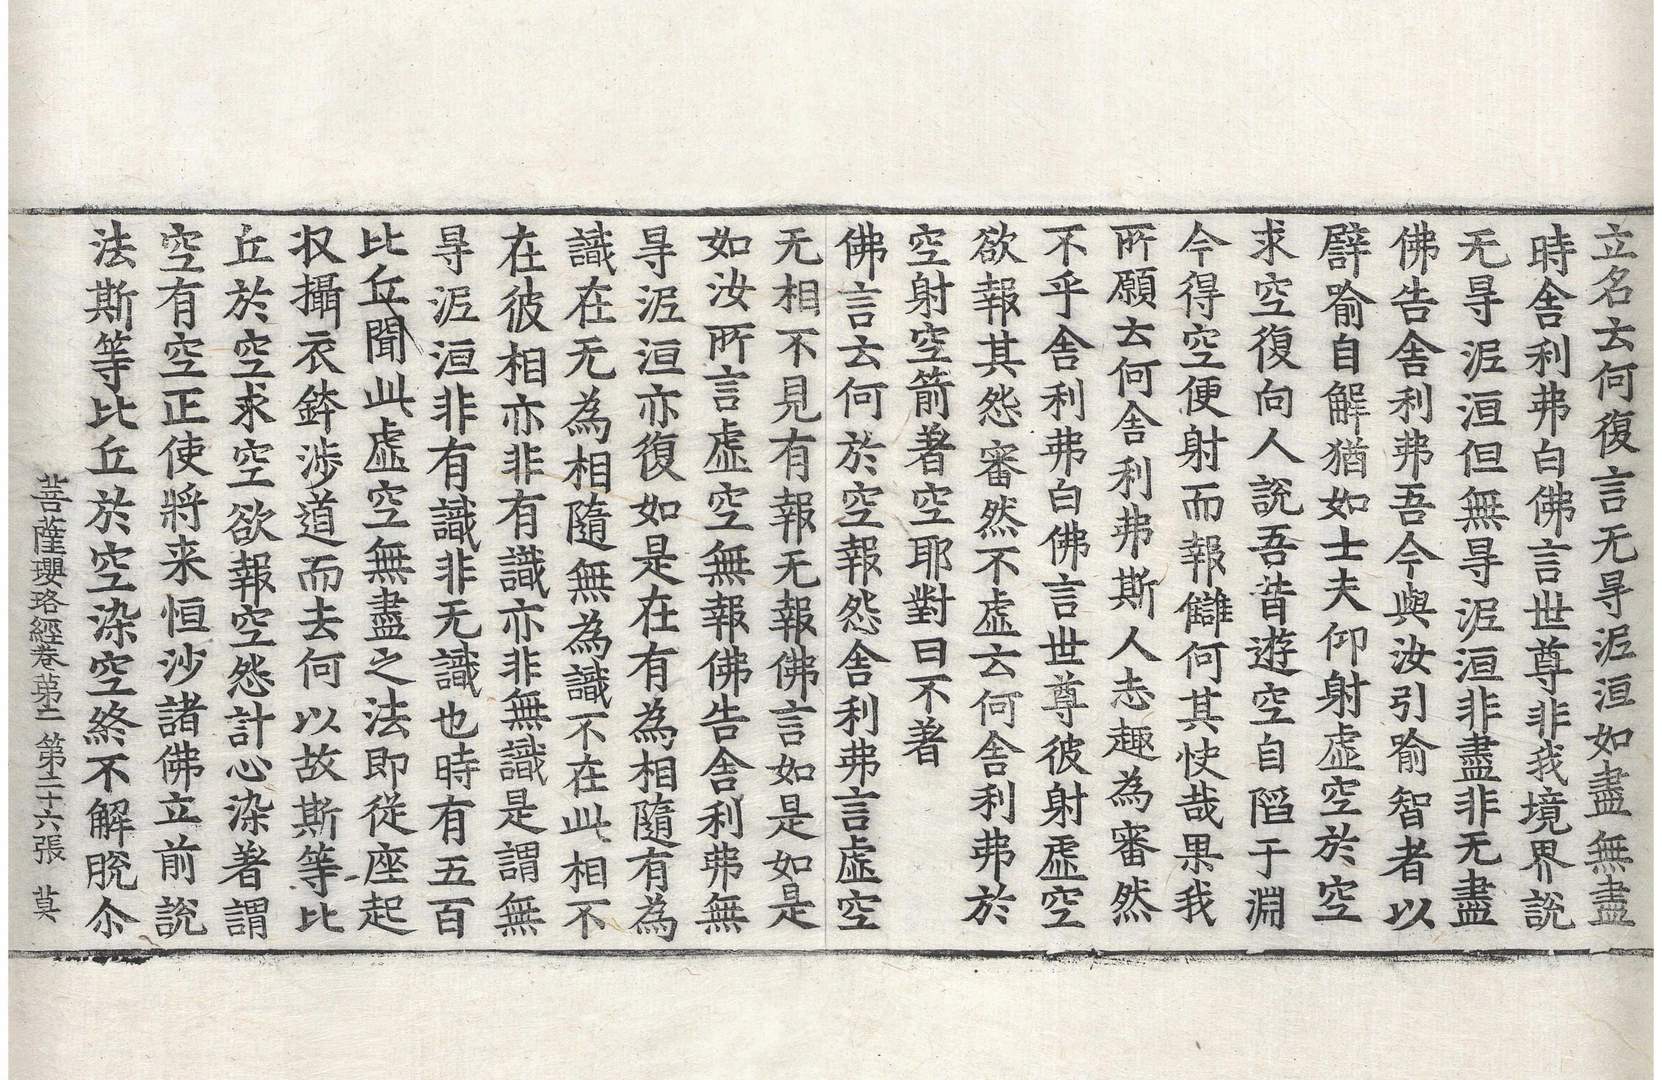 立名云何復言无㝵泥洹如盡無盡
時舍利弗白佛言世尊非我境界說
无㝵泥洹但無㝵泥洹非盡非无盡
佛告舍利弗吾今與汝引喻智者以
譬喻自解猶如士夫仰射虛空於空
求空復向人說吾昔遊空自陷于淵
今得空便射而報讎何其快哉果我
所願云何舍利弗斯人志趣為審然
不乎舍利弗白佛言世尊彼射虛空
欲報其怨審然不虛云何舍利弗於
空射空箭著空耶對曰不著
佛言云何於空報怨舍利弗言虛空
无相不見有報无報佛言如是如是
如汝所言虛空無報佛告舍利弗無
㝵泥洹亦復如是在有為相隨有為
識在无為相隨無為識不在此相不
在彼相亦非有識亦非無識是謂無
㝵泥洹非有識非无識也時有五百
比丘聞此虛空無盡之法即從座起
收攝衣鉢涉道而去何以故斯等比
丘於空求空欲報空怨計心染著謂
空有空正使將来恒沙諸佛立前說
法斯等比丘於空染空終不解脫尒
菩薩瓔珞經卷苐二 第二十六張 莫